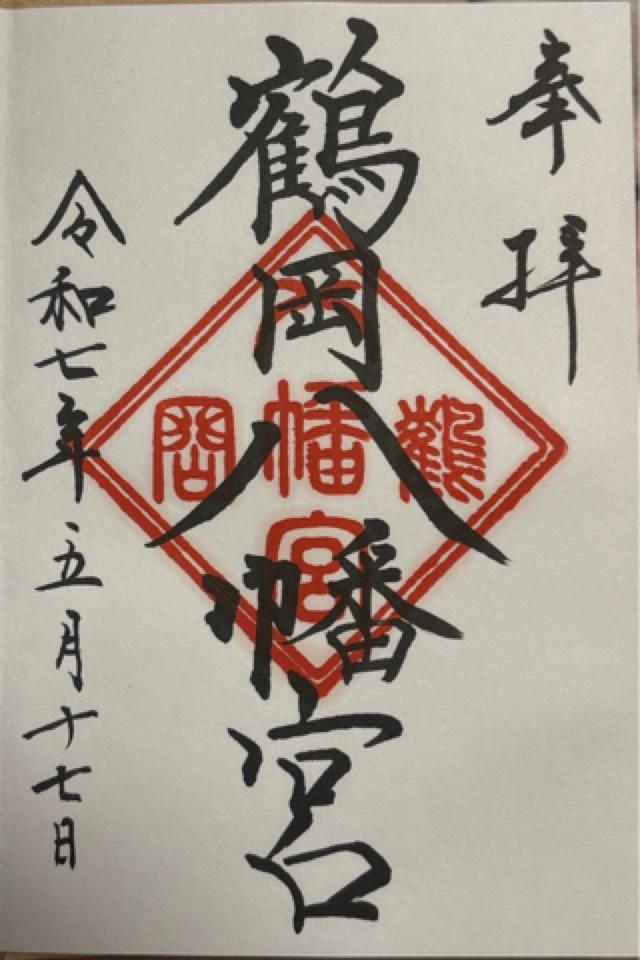 奉拝
鶴岡八幡宮
鶴岡
八幡宮
令和七年五月十七日